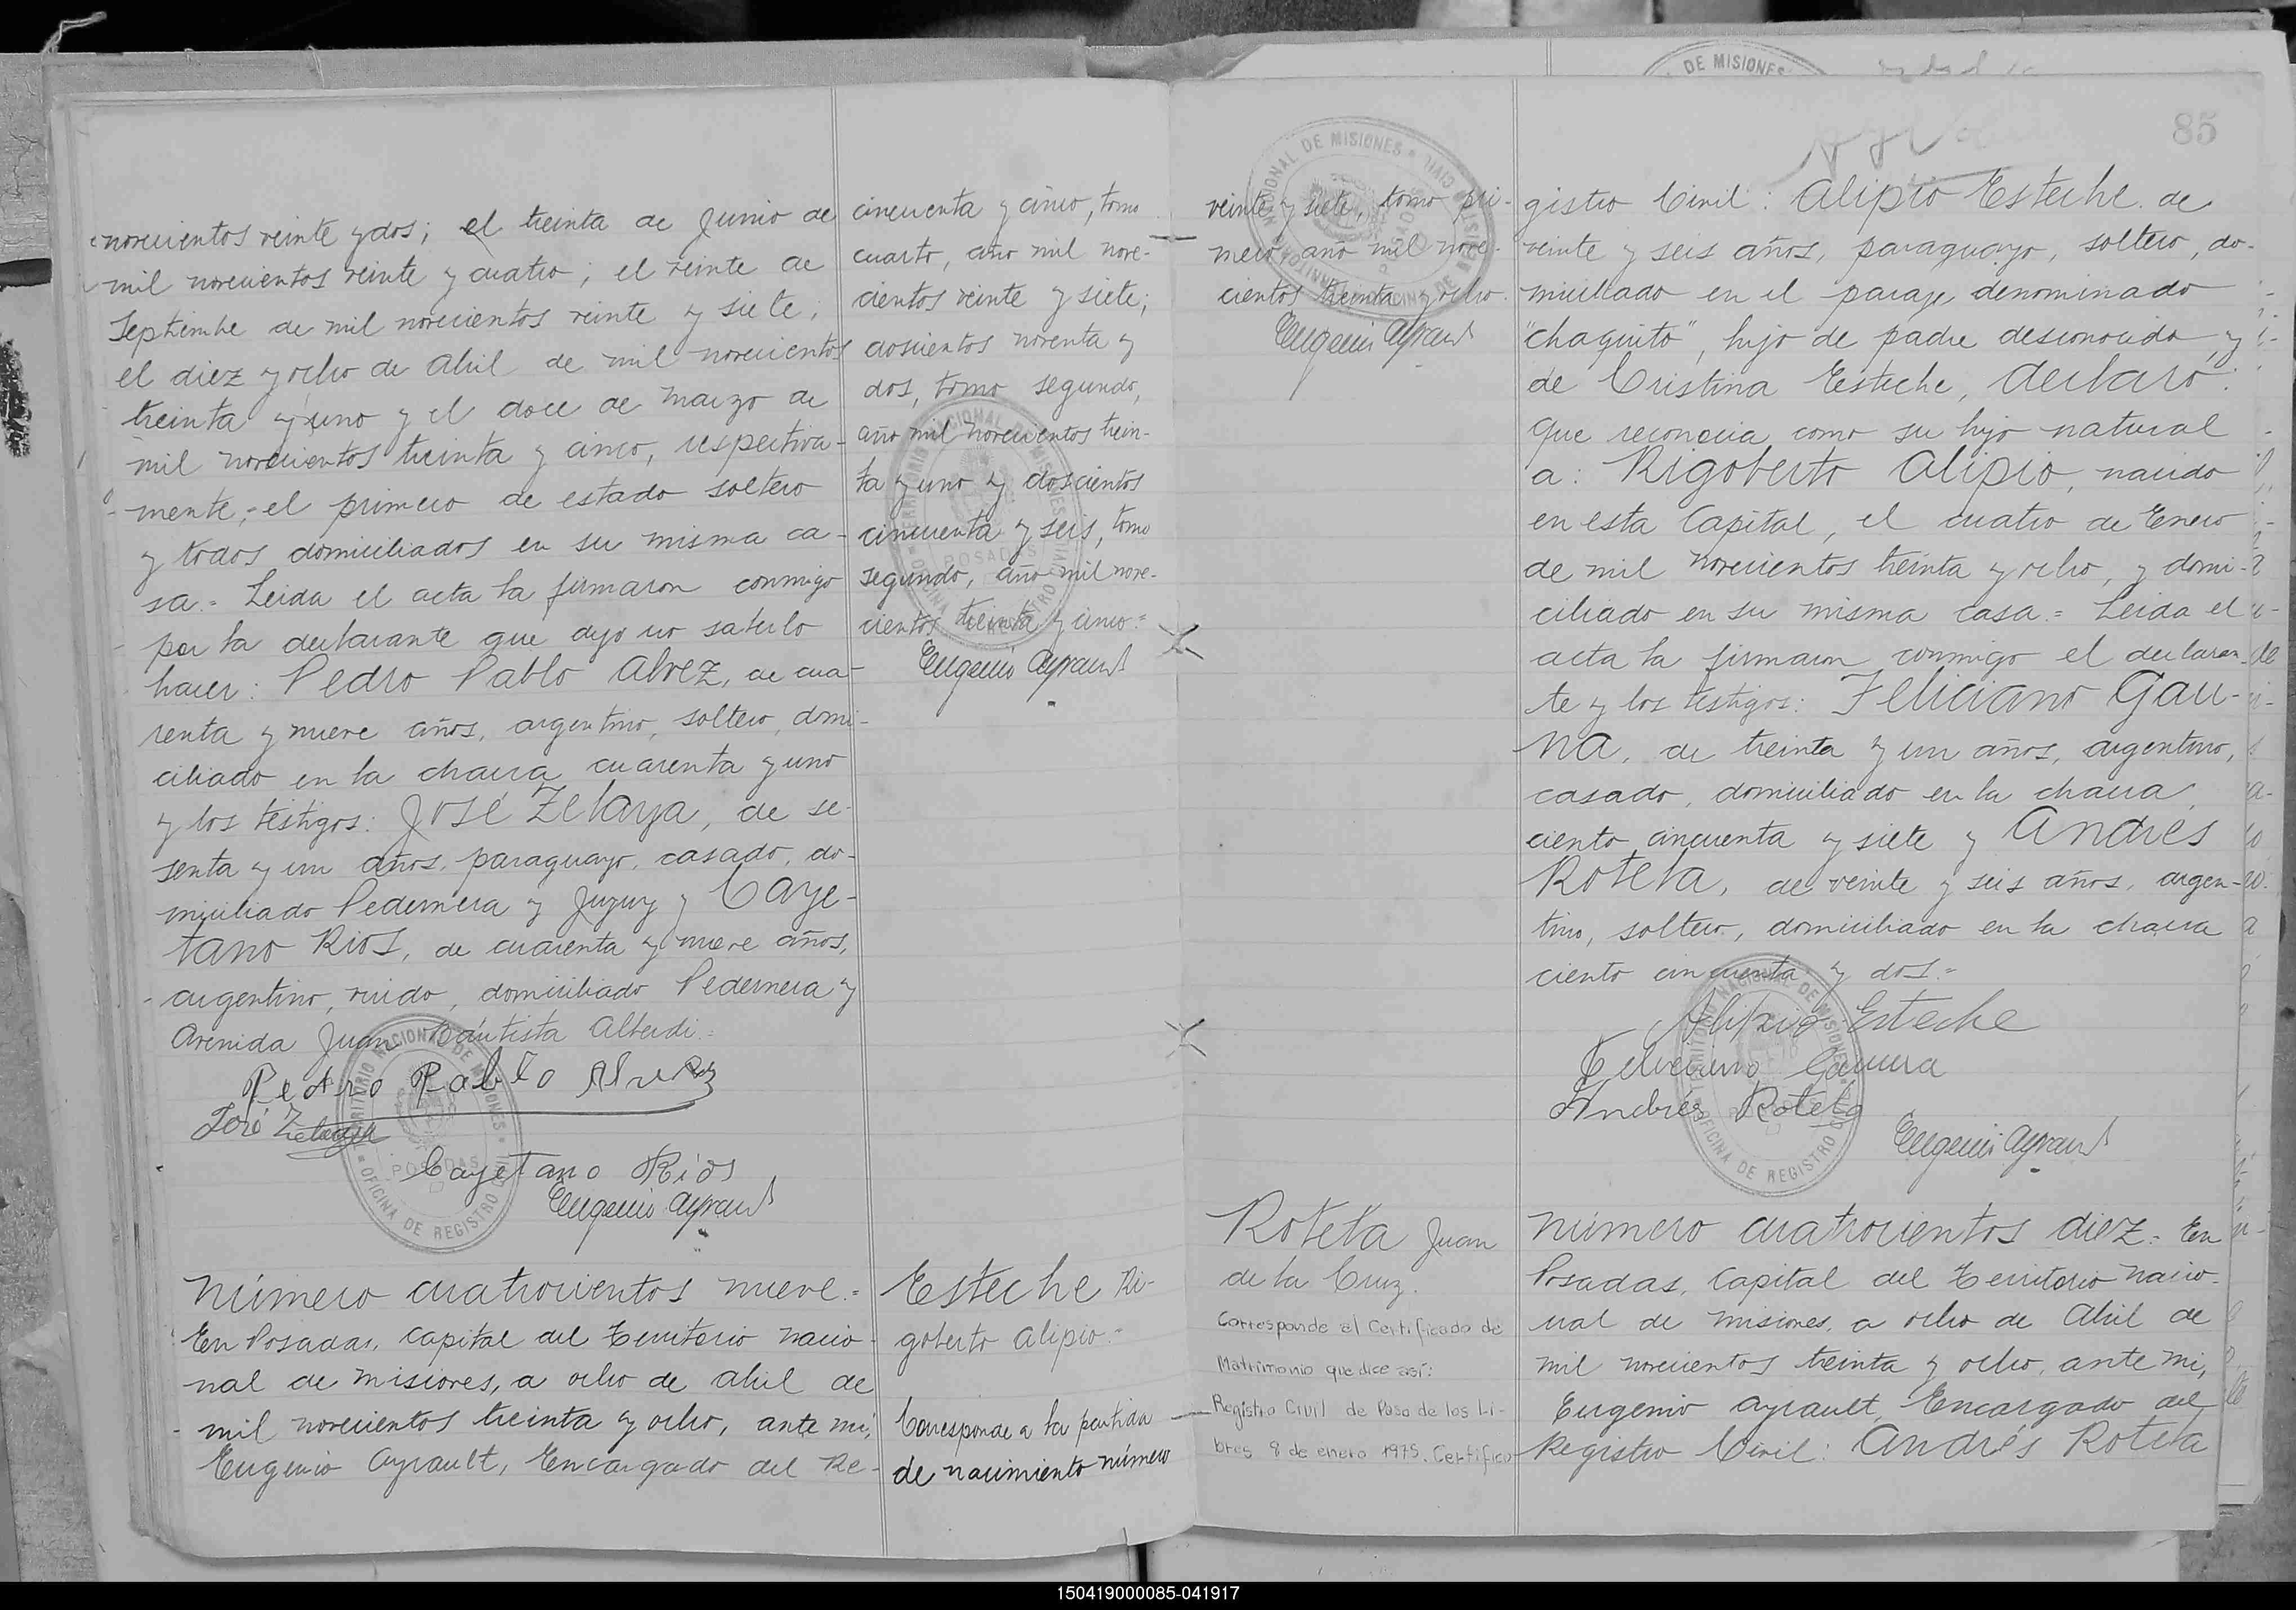 novecientos veinte y dos; el treinta de Junio de
mil novecientos veinte y cuatro; el veinte de
Septiembre de mil novecientos veinte y siete;
el diez y ocho de Abril de mil novecientos
treinta y uno y el doce de Marzo de
mil novecientos treinta y cinco, respectiva-
mente;=el primero de estado soltero
y todos domiciliados en su misma ca-
sa.= Leida el acta la firmaron conmigo
por la declarante que dijo no saberlo
hacer: Pedro Pablo Alvez, de cua-
renta y nueve años, argentino, soltero, domi-
ciliado en la chacra cuarenta y uno
y los testigos: José Zelaya, de se-
senta y un años, paraguayo, casado, do-
miciliado Pedernera y Jujuy y Caye-
tano Rios, de cuarenta y nueve años,
argentino, viudo, domiciliado Pedernera y
Avenida Juan Bautista Alberdi.=
Pedro Pablo Alvez
José Zelaya
Cayetano Rios
Eugenio Ayrault
TERRITORIO NACIONAL DE MISIONES
POSADAS
OFICINA DE REGISTRO CIVIL
Número cuatrocientos nueve.=
En Posadas, Capital del Territorio Nacio-
nal de Misiones, a ocho de Abril de
mil novecientos treinta y ocho, ante mi,
Eugenio Ayrault, Encargado del Re-
cincuenta y cinco, tomo
cuarto, año mil nove-
cientos veinte y siete;
doscientos noventa y
dos, tomo segundo,
año mil novecientos trein-
ta y uno y doscientos
cincuenta y seis, tomo
segundo, año mil nove-
cientos treinta y cinco.=
Eugenio Ayrault
TERRITORIO NACIONAL DE MISIONES
POSADAS
OFICINA DE REGISTRO CIVIL
Esteche Ri-
goberto Alipio.=
Corresponde a la partida
de nacimiento número
DE MISIONES
85
veinte y siete, tomo pri-
mero año mil nove-
cientos treinta y ocho.
Eugenio Ayrault
Roteta Juan
de la Cruz.
Corresponde al Certificado de
Matrimonio que dice así:
Registro Civil de Paso de los Li-
bres 8 de enero 1975. Certifico
gistro Civil: Alipio Esteche de
veinte y seis años, paraguayo, soltero, do-
miciliado en el paraje denominado
"Chaquito", hijo de padre desconocido y
de Cristina Esteche, declaró:
Que reconocia como su hijo natural
a: Rigoberto Alipio, nacido
en esta Capital, el cuatro de Enero
de mil novecientos treinta y ocho, y domi-
ciliado en su misma casa.= Leida el
acta la firmaron conmigo el declaran-
te y los testigos: Feliciano Gau-
na, de treinta y un años, argentino,
casado, domiciliado en la chacra
ciento cincuenta y siete y Andrés
Roteta, de veinte y seis años, argen-
tino, soltero, domiciliado en la chacra
ciento cincuenta y dos.=
Alipio Esteche
Feliciano Gauna
Andrés Roteta
Eugenio Ayrault
TERRITORIO NACIONAL DE MISIONES
OFICINA DE REGISTRO CIVIL
Número cuatrocientos diez.= En
Posadas, Capital del Territorio Nacio-
nal de Misiones, a ocho de Abril de
mil novecientos treinta y ocho, ante mi,
Eugenio Ayrault, Encargado del
Registro Civil: Andrés Roteta
150419000085-041917